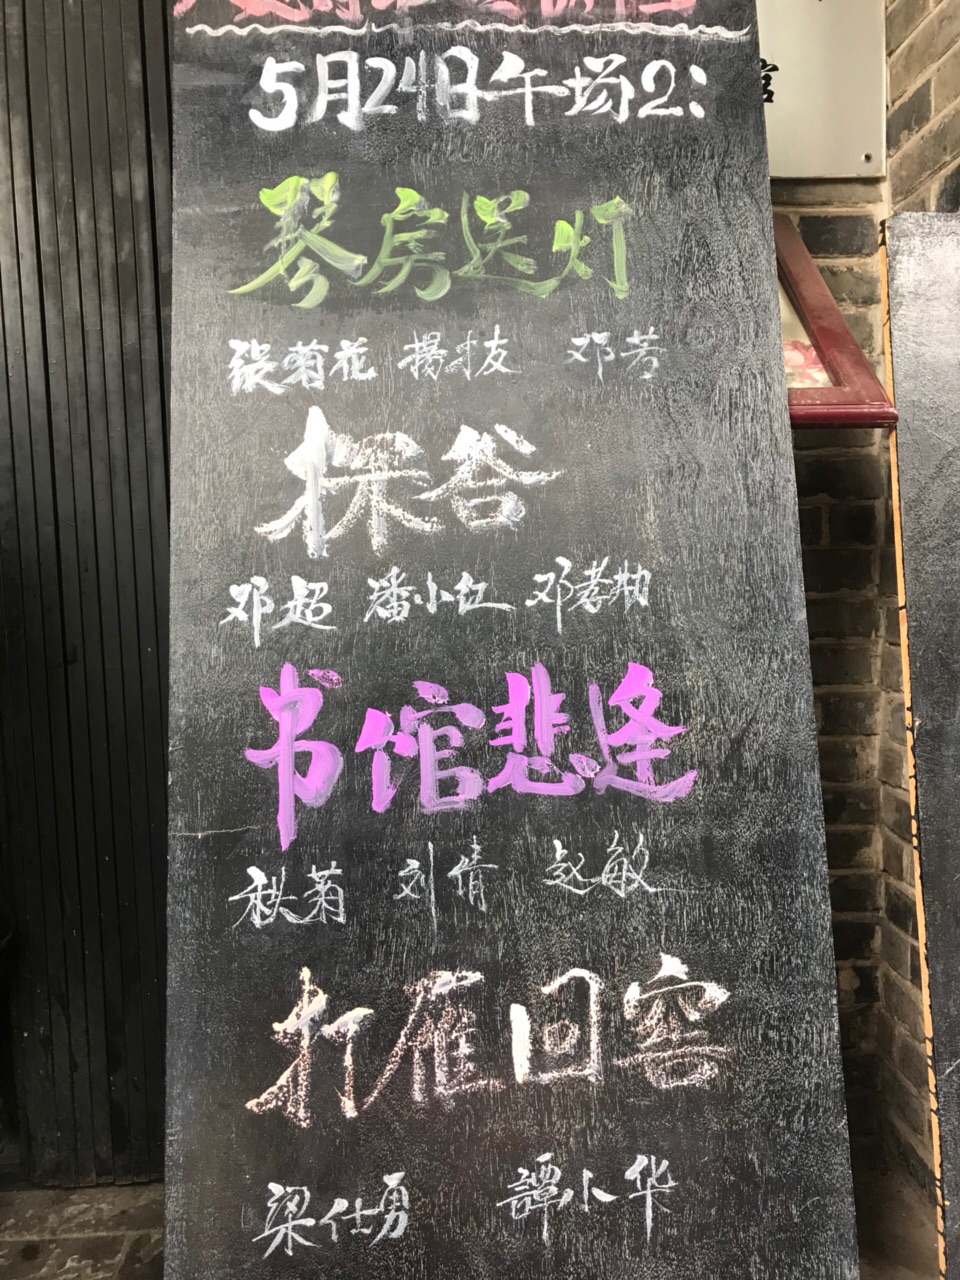 5月24日午场2：
琴房送灯
張菊花 揚才友 邓芳
探谷
邓超 潘小红 邓孝
书馆悲逢
秋菊 刘倩 赵敏
打雁回窑
梁仕勇 譚小华